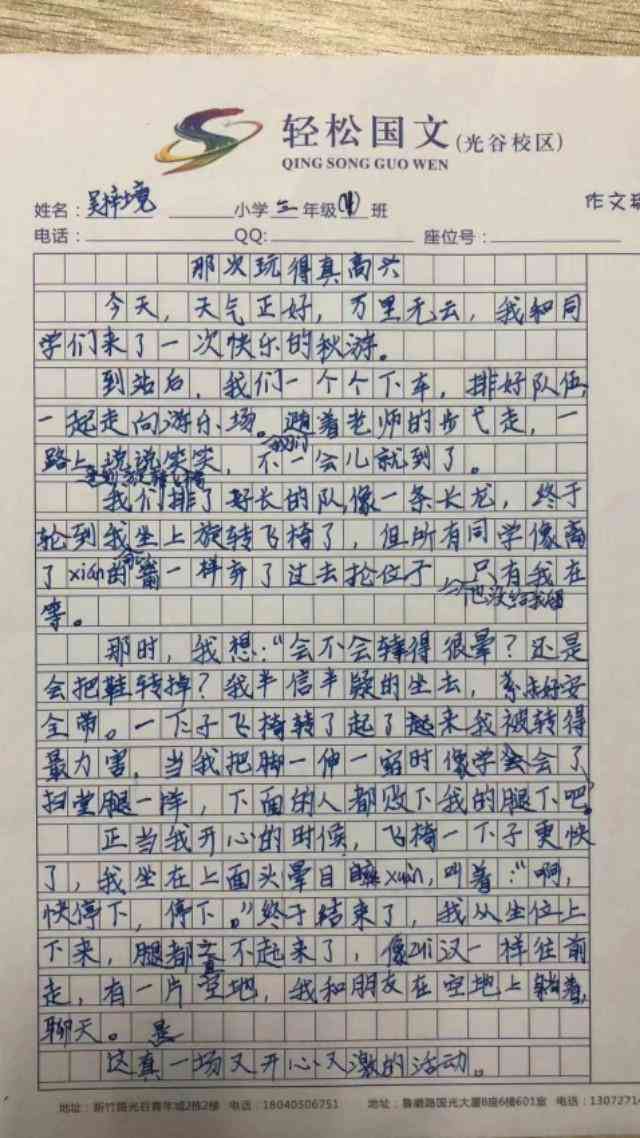 轻松国文(光谷校区)
QING SONG GUO WEN
姓名：吴梓境 小学三年级(4)班 作文
电话： QQ: 座位号：
那次玩得真高兴
今天，天气正好，万里无云，我和同
学们来了一次快乐的秋游。
到站后，我们一个个下车，排好队伍，
一起走向游乐场。随着老师的步弋走，一
路上说说笑笑，不一会儿就到了。
我们
我们排了好长的队，像一条长龙，终于
轮到我坐上旋转飞椅了，但所有同学像离
了xián的箭一样奔了过去抢位子 只有我在
他没给我留
等。
那时，我想：“会不会转得很晕？还是
会把鞋转掉？我半信半疑的坐去，系好安
全带。一下子飞椅转了起了起来我被转得
最力害，当我把脚一伸一缩时像学会了
扫堂腿一样，下面的人都败下我的腿下吧。
正当我开心的时候，飞椅一下子更快
了，我坐在上面头晕目xuàn，叫着：“啊，
快停下，停下。”终于结束了，我从坐位上
下来，腿都直不起来了，像zuì汉一样往前
走，有一片空地，我和朋友在空地上躺着，
聊天。
是
这真一场又开心又激的活动。
地址：新竹路光谷青年城2栋2楼 电话：18040506751 地址：鲁磨路国光大厦B座6楼601室 电话：1307271